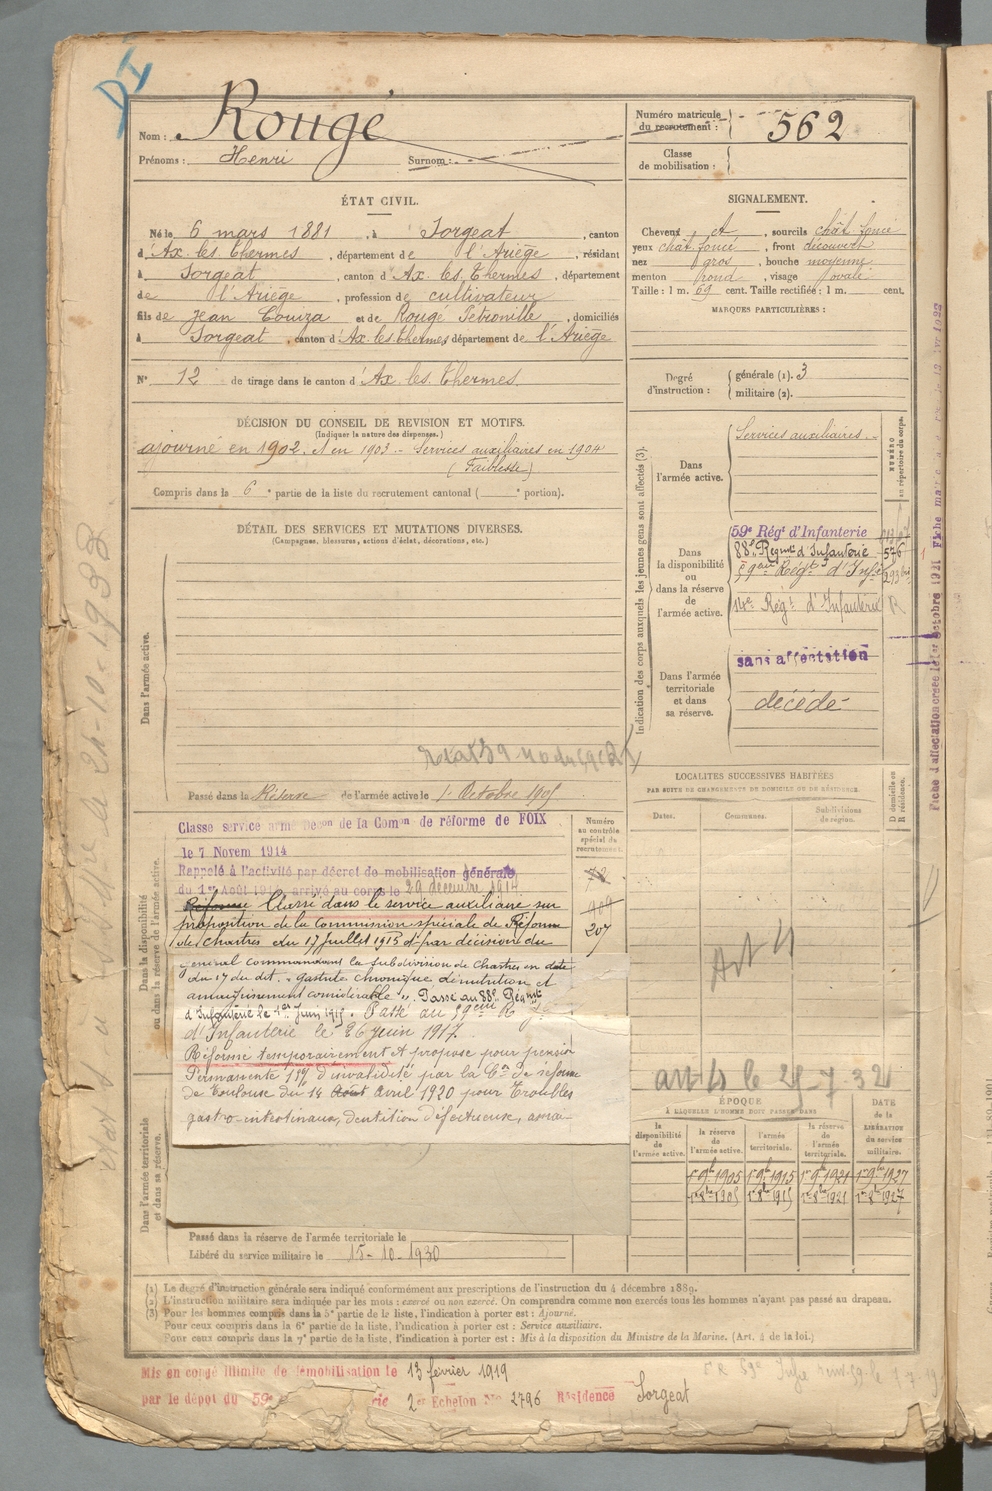 Nom : Rougé
Prénoms : Henri Surnom :
Numéro matricule du recrutement : 562
Classe de mobilisation :
ÉTAT CIVIL.
Né le 6 mars 1881, à Sorgeat, canton
d'Ax les Thermes, département de l'Ariège, résidant
à Sorgeat, canton d'Ax les Thermes, département
de l'Ariège, profession de cultivateur
fils de Jean Couza et de Rougé Petronille, domiciliés
à Sorgeat, canton d'Ax les thermes département de l'Ariège
N° 12 de tirage dans le canton d'Ax les Thermes
SIGNALEMENT.
Cheveux, sourcils chât foncé
yeux chât foncé, front découvert
nez gros, bouche moyenne
menton rond, visage ovale
Taille : 1 m. 69 cent. Taille rectifiée : 1 m. cent.
MARQUES PARTICULIÈRES :
Degré d'instruction : générale (1). 3
militaire (2).
DÉCISION DU CONSEIL DE REVISION ET MOTIFS.
(Indiquer la nature des dispenses.)
ajourné en 1902, et en 1903 - Services auxiliaires en 1904
(Faiblesse)
Compris dans la 6e partie de la liste du recrutement cantonal ( e portion).
DÉTAIL DES SERVICES ET MUTATIONS DIVERSES.
(Campagnes, blessures, actions d'éclat, décorations, etc.)
Dans l'armée active.
Passé dans la Réserve de l'armée active le 1er Octobre 1905
Indication des corps auxquels les jeunes gens sont affectés (3).
NUMÉRO au répertoire du corps.
Dans l'armée active.
Services auxiliaires.
Dans la disponibilité ou dans la réserve de l'armée active.
59e Régt d'Infanterie
88e Régmt d'Infanterie 576
59ème Régt d'Infie
14e Régt d'Infanterie R
Dans l'armée territoriale et dans sa réserve.
sans affectation
décédé
LOCALITÉS SUCCESSIVES HABITÉES
PAR SUITE DE CHANGEMENTS DE DOMICILE OU DE RÉSIDENCE.
Dates. Communes. Subdivisions de région. D domicile ou R résidence.
Art 4
art 4 le 25-7-32
Dans la disponibilité ou dans la réserve de l'armée active.
Numéro au contrôle spécial du recrutement.
909
207
Classe service armé Déson de la Comon de réforme de FOIX
le 7 Novem 1914
Rappelé à l'activité par décret de mobilisation générale
du 1er Août 1914, arrivé au corps le 29 décembre 1914
Réformé Classé dans le service auxiliaire sur
proposition de la Commission spéciale de Réforme
de Chartres du 17 Juillet 1915 et par décision du
général commandant la subdivision de Chartres en date
du 17 du dit. "gastrite chronique dénutrition et
amaigrissement considérable". Passé au 88e Régmt
d'Infanterie le 1er Juin 1917. Passé au 59ème R
d'Infanterie le 26 Juin 1917.
Réformé temporairement et proposé pour pension
Permanente d'invalidité par la Con de réforme
de Toulouse du 14 Août avril 1920 pour Troubles
gastro-intestinaux, dentition défectueuse,
Dans l'armée territoriale et dans sa réserve.
Passé dans la réserve de l'armée territoriale le
Libéré du service militaire le 15-10-1930
ÉPOQUE
À LAQUELLE L'HOMME DOIT PASSER DANS
DATE de la LIBÉRATION du service militaire.
la disponibilité de l'armée active. la réserve de l'armée active. l'armée territoriale. la réserve de l'armée territoriale.
1er 9bre 1905 1er 9bre 1915 1er 9bre 1921 1er 9bre 1927
1er 8bre 1905 1er 8bre 1915 1er 8bre 1921 1er 8bre 1927
(1) Le degré d'instruction générale sera indiqué conformément aux prescriptions de l'instruction du 4 décembre 1889.
(2) L'instruction militaire sera indiquée par les mots : exercé ou non exercé. On comprendra comme non exercés tous les hommes n'ayant pas passé au drapeau.
(3) Pour les hommes compris dans la 5e partie de la liste, l'indication à porter est : Ajourné.
Pour ceux compris dans la 6e partie de la liste, l'indication à porter est : Service auxiliaire.
Pour ceux compris dans la 7e partie de la liste, l'indication à porter est : Mis à la disposition du Ministre de la Marine. (Art. 4 de la loi.)
Mis en congé illimité de démobilisation le 13 février 1919
par le dépôt du 59e 2e Echelon No 2796 Résidence Sorgeat